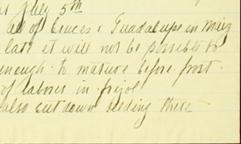 at July 5th
ad of Cruces & Guadalupe in May
late it will not be possible to
enough to mature before frost.
of labores in frijol
also cut down seeding there